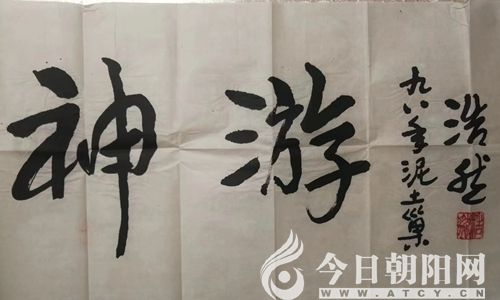 神游
九八年泥土巢
浩然
今日朝阳网
WWW.ATCY.CN